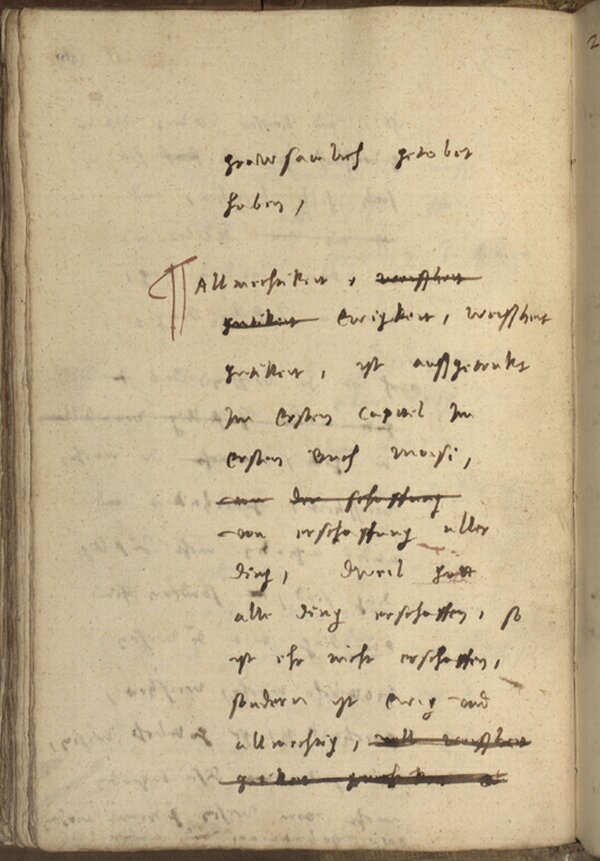 grawsamlich getobet
haben,
¶ Allmechtikeit, weissheit
gutikeit Ewigkeit, weissheit
gutikeit, ist aussgedrukt
Im Ersten Capitel Im
Ersten Buch Moisi,
von der schaffung
von erschaffung aller
ding, dweil gott
alle ding erschaffen, so
ist ehr nicht erschaffen,
sondern ist Ewig und
allmechtig, weissheit